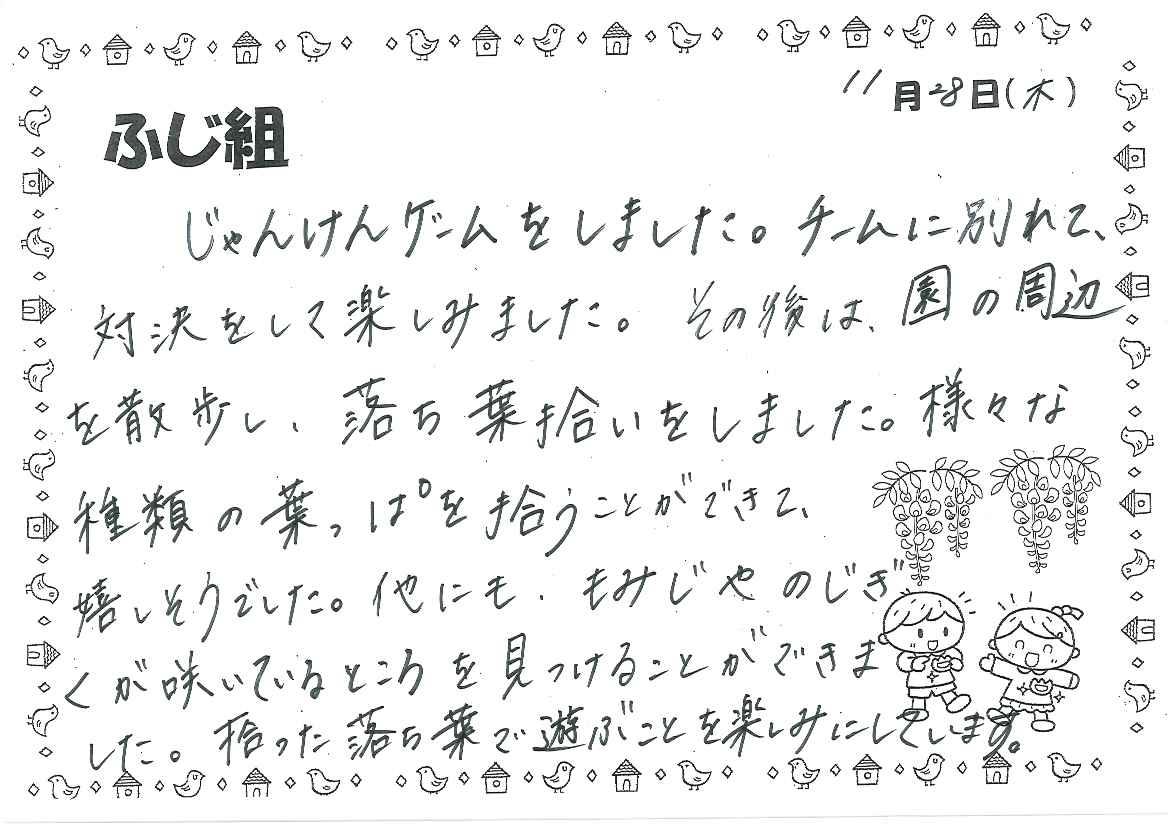 11月28日(木)
ふじ組
じゃんけんゲームをしました。チームに別れて、
対決をして楽しみました。その後は、園の周辺
を散歩し、落ち葉拾いをしました。様々な
種類の葉っぱを拾うことができて、
嬉しそうでした。他にも、もみじやのじぎ
くが咲いているところを見つけることができま
した。拾った落ち葉で遊ぶことを楽しみにしています。